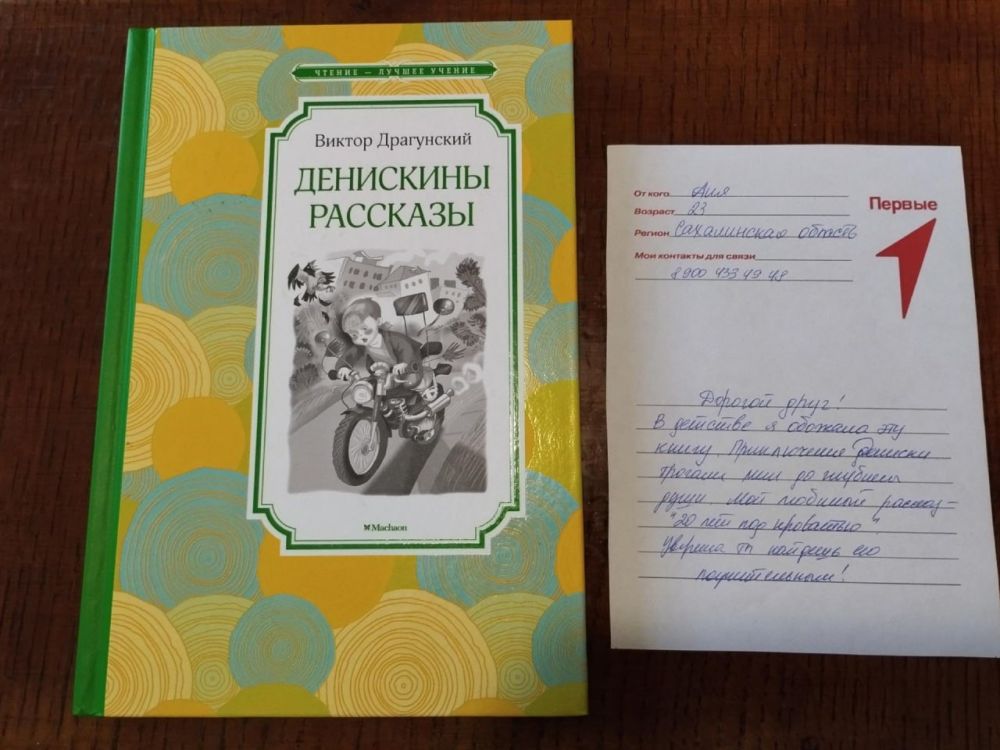 ЧТЕНИЕ – ЛУЧШЕЕ УЧЕНИЕ
Виктор Драгунский
ДЕНИСКИНЫ
РАССКАЗЫ
Machaon
От кого Аля
Возраст 23
Регион Сахалинская область
Мои контакты для связи
8900 433 49 48
Первые
Дорогой друг!
В детстве я обожала эту
книгу. Приключения Дениски
трогали меня до глубины
души. Мой любимый рассказ –
"20 лет под кроватью".
Уверена ты найдешь его
поучительным!